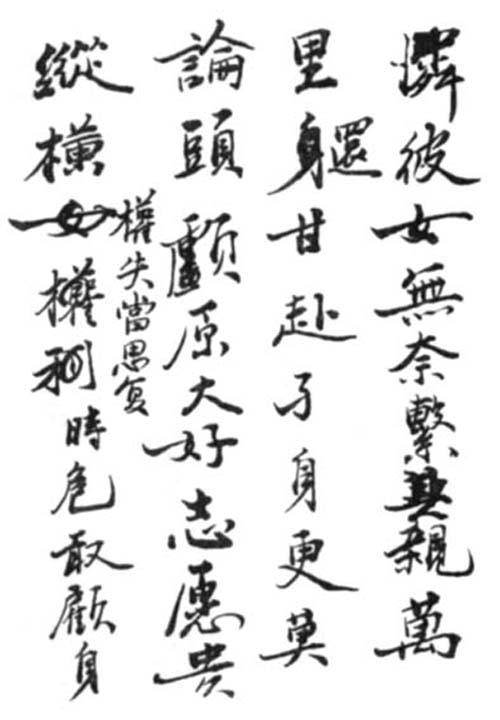 憐彼女無奈繫其親萬
里身還甘赴孑身更莫
論頭顱原大好志愿貴
權失當思复
縱橫女權時危敢顧身